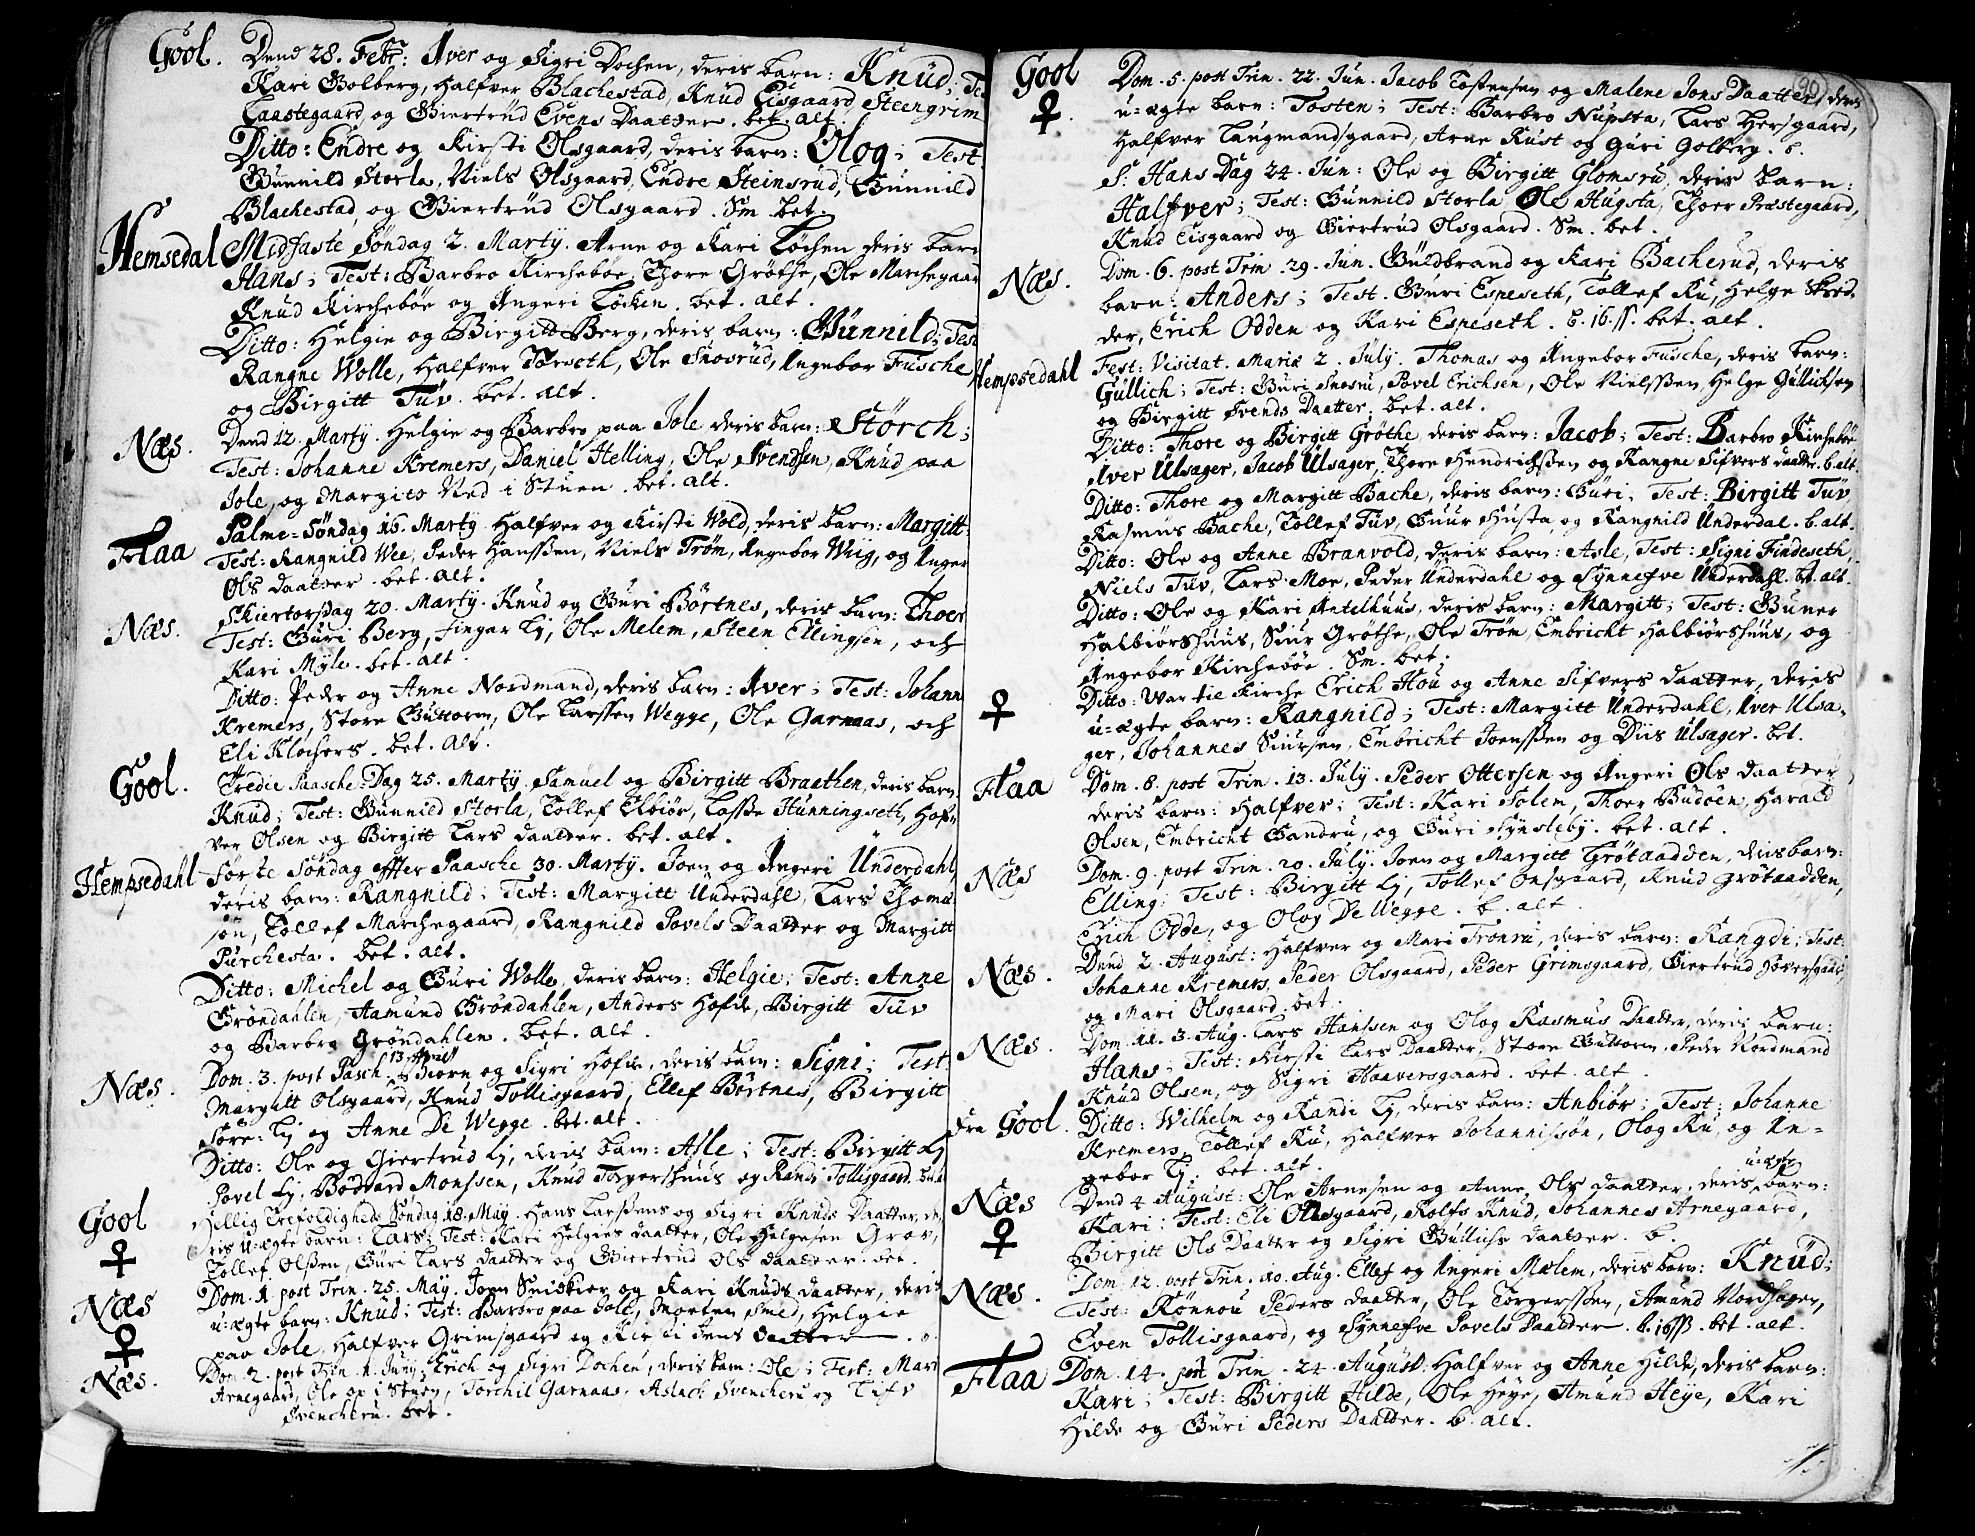 Gool. Dend 28. Febr: Iver og Sigri Dochen, deris barn: Knud; Te
Kari Golberg, Halfver Blachestad, Knud Eisgaard, Steengrim
Laastegaard, og Giertrud Evens Daatter. bet. alt.
Ditto: Endre og Kirsti Olsgaard, deris barn: Olog; Test
Gunnild Storla, Niels Olsgaard, Endre Steinsrud, Gunnild
Blachestad, og Giertrud Olsgaard. Sm bet.
Hemsedal Midfaste Søndag 2. Marty. Arne og Kari Løchen deris barn
Hans; Test: Barbro Kirchebøe, Thore Grøthe, Ole Marchegaar
Knud Kirchebøe og Angeri Løcken. bet. alt.
Ditto: Helgie og Birgitt Berg, deris barn: Gunnild; Test
Rangne Wolle, Halfver Torseth, Ole Snosrud, Ingebor Fusche
og Birgitt Tuv. bet. alt.
Næs. Dend 12. Marty. Helgie og Barbro paa Jole, deris barn: Størch;
Test: Johanne Kremers, Daniel Helling, Ole Svendsen, Knud paa
Jole, og Margito Ned i Stuen. bet. alt.
Flaa Palme-Søndag 16. Marty. Halfver og Kirsti Wold, deris barn: Margitt
Test: Rangnild Wee, Peder Hanssen, Niels Trøm, Ingebor Wiig, og Inger
Ols Daatter. bet. alt.
Næs. Skiertorsdag 20. Marty. Knud og Guri Børtnes, deris barn: Thoer
Test: Guri Berg, Fingar Lj, Ole Melem, Steen Ellingsen, och
Kari Myle. bet. alt.
Ditto: Peder og Anne Nordmand, deris barn: Iver; Test: Johann
Kremers, Store Guttorm, Ole Larssen Wegge, Ole Garnaas, och
Eli Klochers. bet. alt.
Gool. Tredie Paasche-Dag 25. Marty. Samuel og Birgitt Braathen, deris barn
Knud; Test: Gunnild Storla, Tollef Elbiør, Lasse Hunningseth, Hof-
ver Olsen og Birgitt Lars Daatter. bet. alt.
Hempsedahl Første Søndag effter Paasche 30. Marty. Joen og Angeri Underdahl
deris barn: Rangnild; Test: Margitt Underdahl, Lars Thoma
søn, Tollef Marchegaard, Rangnild Povels Daatter og Margitt
Purchesta. bet. alt.
Ditto: Michel og Guri Wolle, deris barn: Helgie; Test: Anne
Grøndahlen, Aamund Grøndahlen, Anders Hofde, Birgitt Tuv
og Barbro Grøndahlen. bet. alt.
13 April
Næs. Dom. 3. post Pasch. Biørn og Sigri Hofde, deris barn: Signi; Test
Margitt Olsgaard, Knud Tollisgaard, Ellef Børtnes, Birgitt
Søre-Lj og Anne De Wegge. bet. alt.
Ditto: Ole og Giertrud Lj, deris barn: Asle; Test: Birgitt Lj
Povel Lj, Bødvard Monssen, Knud Torgorshuus og Randi Tollisgaard.
Gool Hellig Trefoldigheds Søndag 18. May. Hans Larssens og Sigri Knuds Daatter, de
♀ ris u-ægte barn: Lars; Test: Kari Helgies Daatter, Ole Helgesen Grov,
Tollef Olssen, Guri Lars Daatter og Giertrud Ols Daatter. bet.
Næs Dom. 1. post Trin. 25. May. Joen Snidkier og Kari Knuds Daatter, deris
♀ u-ægte barn: Knud; Test: Barbro paa Jole, Morten Smed, Helgie
paa Jole, Halfver Grimsgaard og Kirsti Jens Daatter.
Næs. Dom. 2. post Trin. 1. Juny. Erich og Sigri Dochen, deris barn: Ole; Test: Mari
Arnegaard, Ole op i Stuen, Torchil Garnaas, Aslach Svencheru og
Svenchru. bet.
Gool Dom. 5. post Trin. 22. Jun. Jacob Tostensen og Malene Jons Daatter, deris
♀. u-ægte barn: Tosten; Test: Barbro Nupsta, Lars Hersgaard,
Halfver Langmandsgaard, Arne Rust og Guri Golberg. b.
S. Hans Dag 24. Jun: Ole og Birgitt Glomsru, deris barn:
Halfver; Test: Gunnild Storla, Ole Haugsta, Thoer Præstegaard,
Knud Eisgaard og Giertrud Olsgaard. Sm. bet.
Næs. Dom. 6. post Trin. 29. Jun. Guldbrand og Kari Bacherud, deris
barn: Anders; Test. Guri Espeseth, Tollef Ru, Helge Skred-
der, Erich Odden og Kari Espeseth. b. 16. ss. bet. alt.
Hempsedahl Fest: Visitat. Mariæ 2. July. Thomas og Ingebor Fusche, deris barn:
Gullich; Test: Guri Snosru, Povel Erichsen, Ole Nielssen, Helge Gullichsen
og Birgitt Svends Daatter. bet. alt.
Ditto: Thore og Birgitt Grøthe, deris barn: Jacob; Test: Barbro Kirchebøe
Iver Ulsager, Jacob Ulsager, Thore Hendrichssen og Rangne Sifvers Daatter. b. alt
Ditto: Thore og Margitt Bache, deris barn: Guri; Test: Birgitt Tuv
Rasmus Bache, Tollef Tuv, Guur Husta, og Rangnild Underdal. b. alt.
Ditto: Ole og Anne Branvold, deris barn: Asle, Test: Signi Findeseth,
Niels Tuv, Lars Moe, Peder Underdahl og Synnefve Underdahl. bt. alt.
Ditto: Ole og Kari Antelhuus, deris barn: Margitt; Test: Guner
Halbiørshuus, Siur Grøthe, Ole Trøm, Embricht Halbiørshuus, og
Angebor Kirchebøe. Sm. bet;
♀ Ditto: War til Kirche Erich Hou og Anne Sifvers Daatter, deris
u-ægte barn: Rangnild; Test: Margitt Underdahl, Iver Ulsa-
ger, Johannes Siursen, Embricht Joenssen og Diis Ulsager. bet.
Flaa Dom. 8. post Trin. 13. July. Peder Ottersen og Angeri Ols Daatter
deris barn: Halfver; Test: Kari Solem, Thoer Budøen, Harald
Olsen, Embricht Sandru, og Guri Synsteby. bet. alt.
Næs Dom. 9. post Trin. 20. July. Joen og Margitt Grøtaadden, deris barn:
Elling; Test: Birgitt Lj, Tollef Onsgaard, Knud Grøtaadden,
Erich Odde, og Olog De Wegge. b. alt.
Næs. Dend 2. August: Halfver og Mari Tronru, deris barn: Rangdi; Test:
Johanne Kremers, Peder Olsgaard, Peder Grimsgaard, Giertrud Hoversgaard,
og Mari Olsgaard. bet.
Næs. Dom. 11. 3. Aug. Lars Hanssen og Olog Rasmus Daatter, deris barn:
Hans; Test: Kirsti Lars Daatter, Store Guttorm, Peder Nordmand
Knud Olsen, og Sigri Haaversgaard. bet. alt.
Fra Gool. Ditto: Wilhelm og Randi Lj, deris barn: Anbiør; Test: Johanne
Kremers, Tollef Ru, Halfver Johannissøn, Olog Ru, og In-
gebor Lj. bet. alt.
u-ægte
Næs Dend 4. August: Ole Arnesen og Anne Ols Daatter, deris barn:
♀ Kari; Test: Eli Olsgaard, Rolfs Knud, Johannes Arnegaard,
Birgitt Ols Daatter og Sigri Gullichs Daatter. b.
Næs. Dom. 12. post Trin. 10. Aug. Ellef og Angeri Mælem, deris barn: Knud;
Test: Rønnou Peders Daatter, Ole Torgerssen, Amund Nordhagen,
Even Tollisgaard, og Synnefve Povels Daatter. b. 16 ss. bet. alt.
Flaa Dom. 14. post Trin. 24. August: Halfver og Anne Hilde, deris barn:
Kari; Test: Birgitt Hilde, Ole Heye, Amund Heye, Kari
Hilde og Guri Peders Daatter. b. alt.